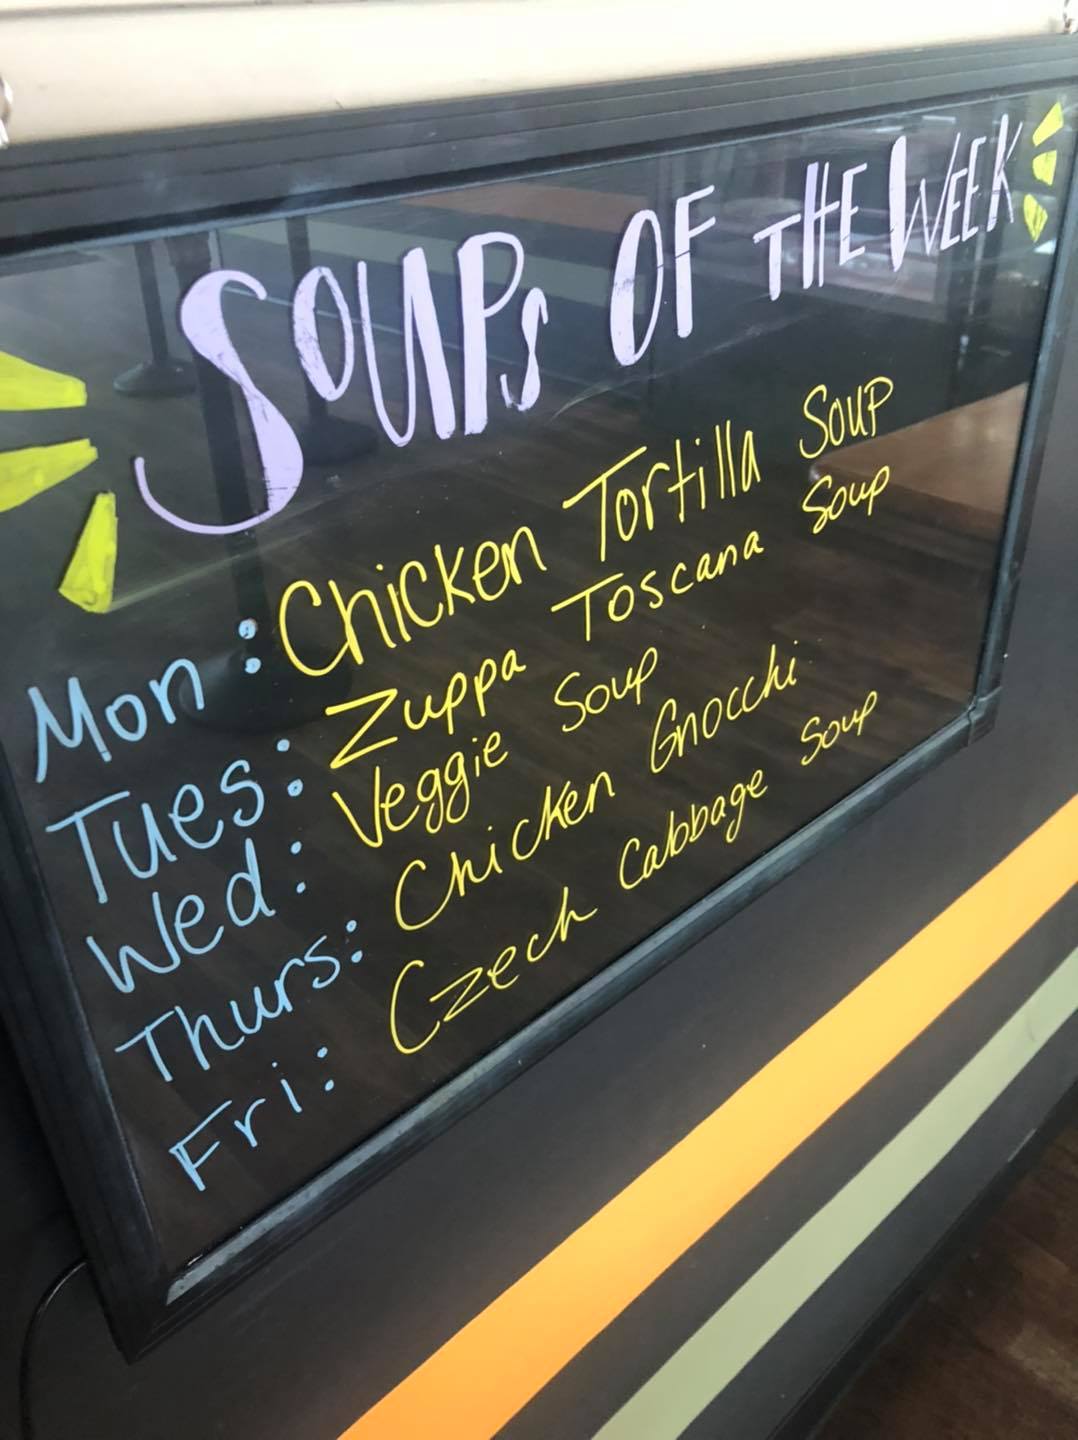 SOUPs OF THE WEEK
Mon: Chicken Tortilla Soup
Tues: Zuppa Toscana Soup
Wed: Veggie Soup
Thurs: Chicken Gnocchi
Fri: Czech Cabbage Soup